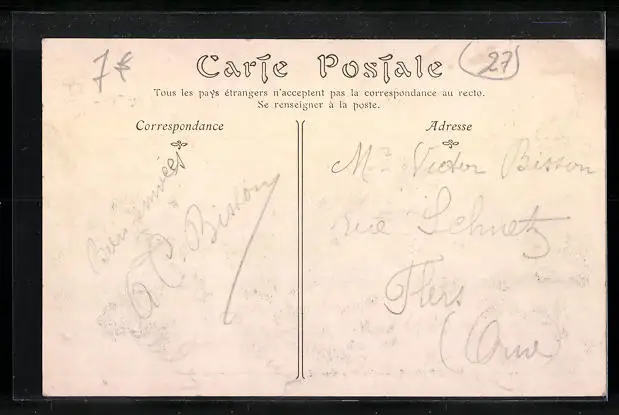 7€
Carte Postale
(27)
Tous les pays étrangers n'acceptent pas la correspondance au recto.
Se renseigner à la poste.
Correspondance
Adresse
Bisson
Mr Victor Bisson
rue Schnetz
Flers
(Orne)